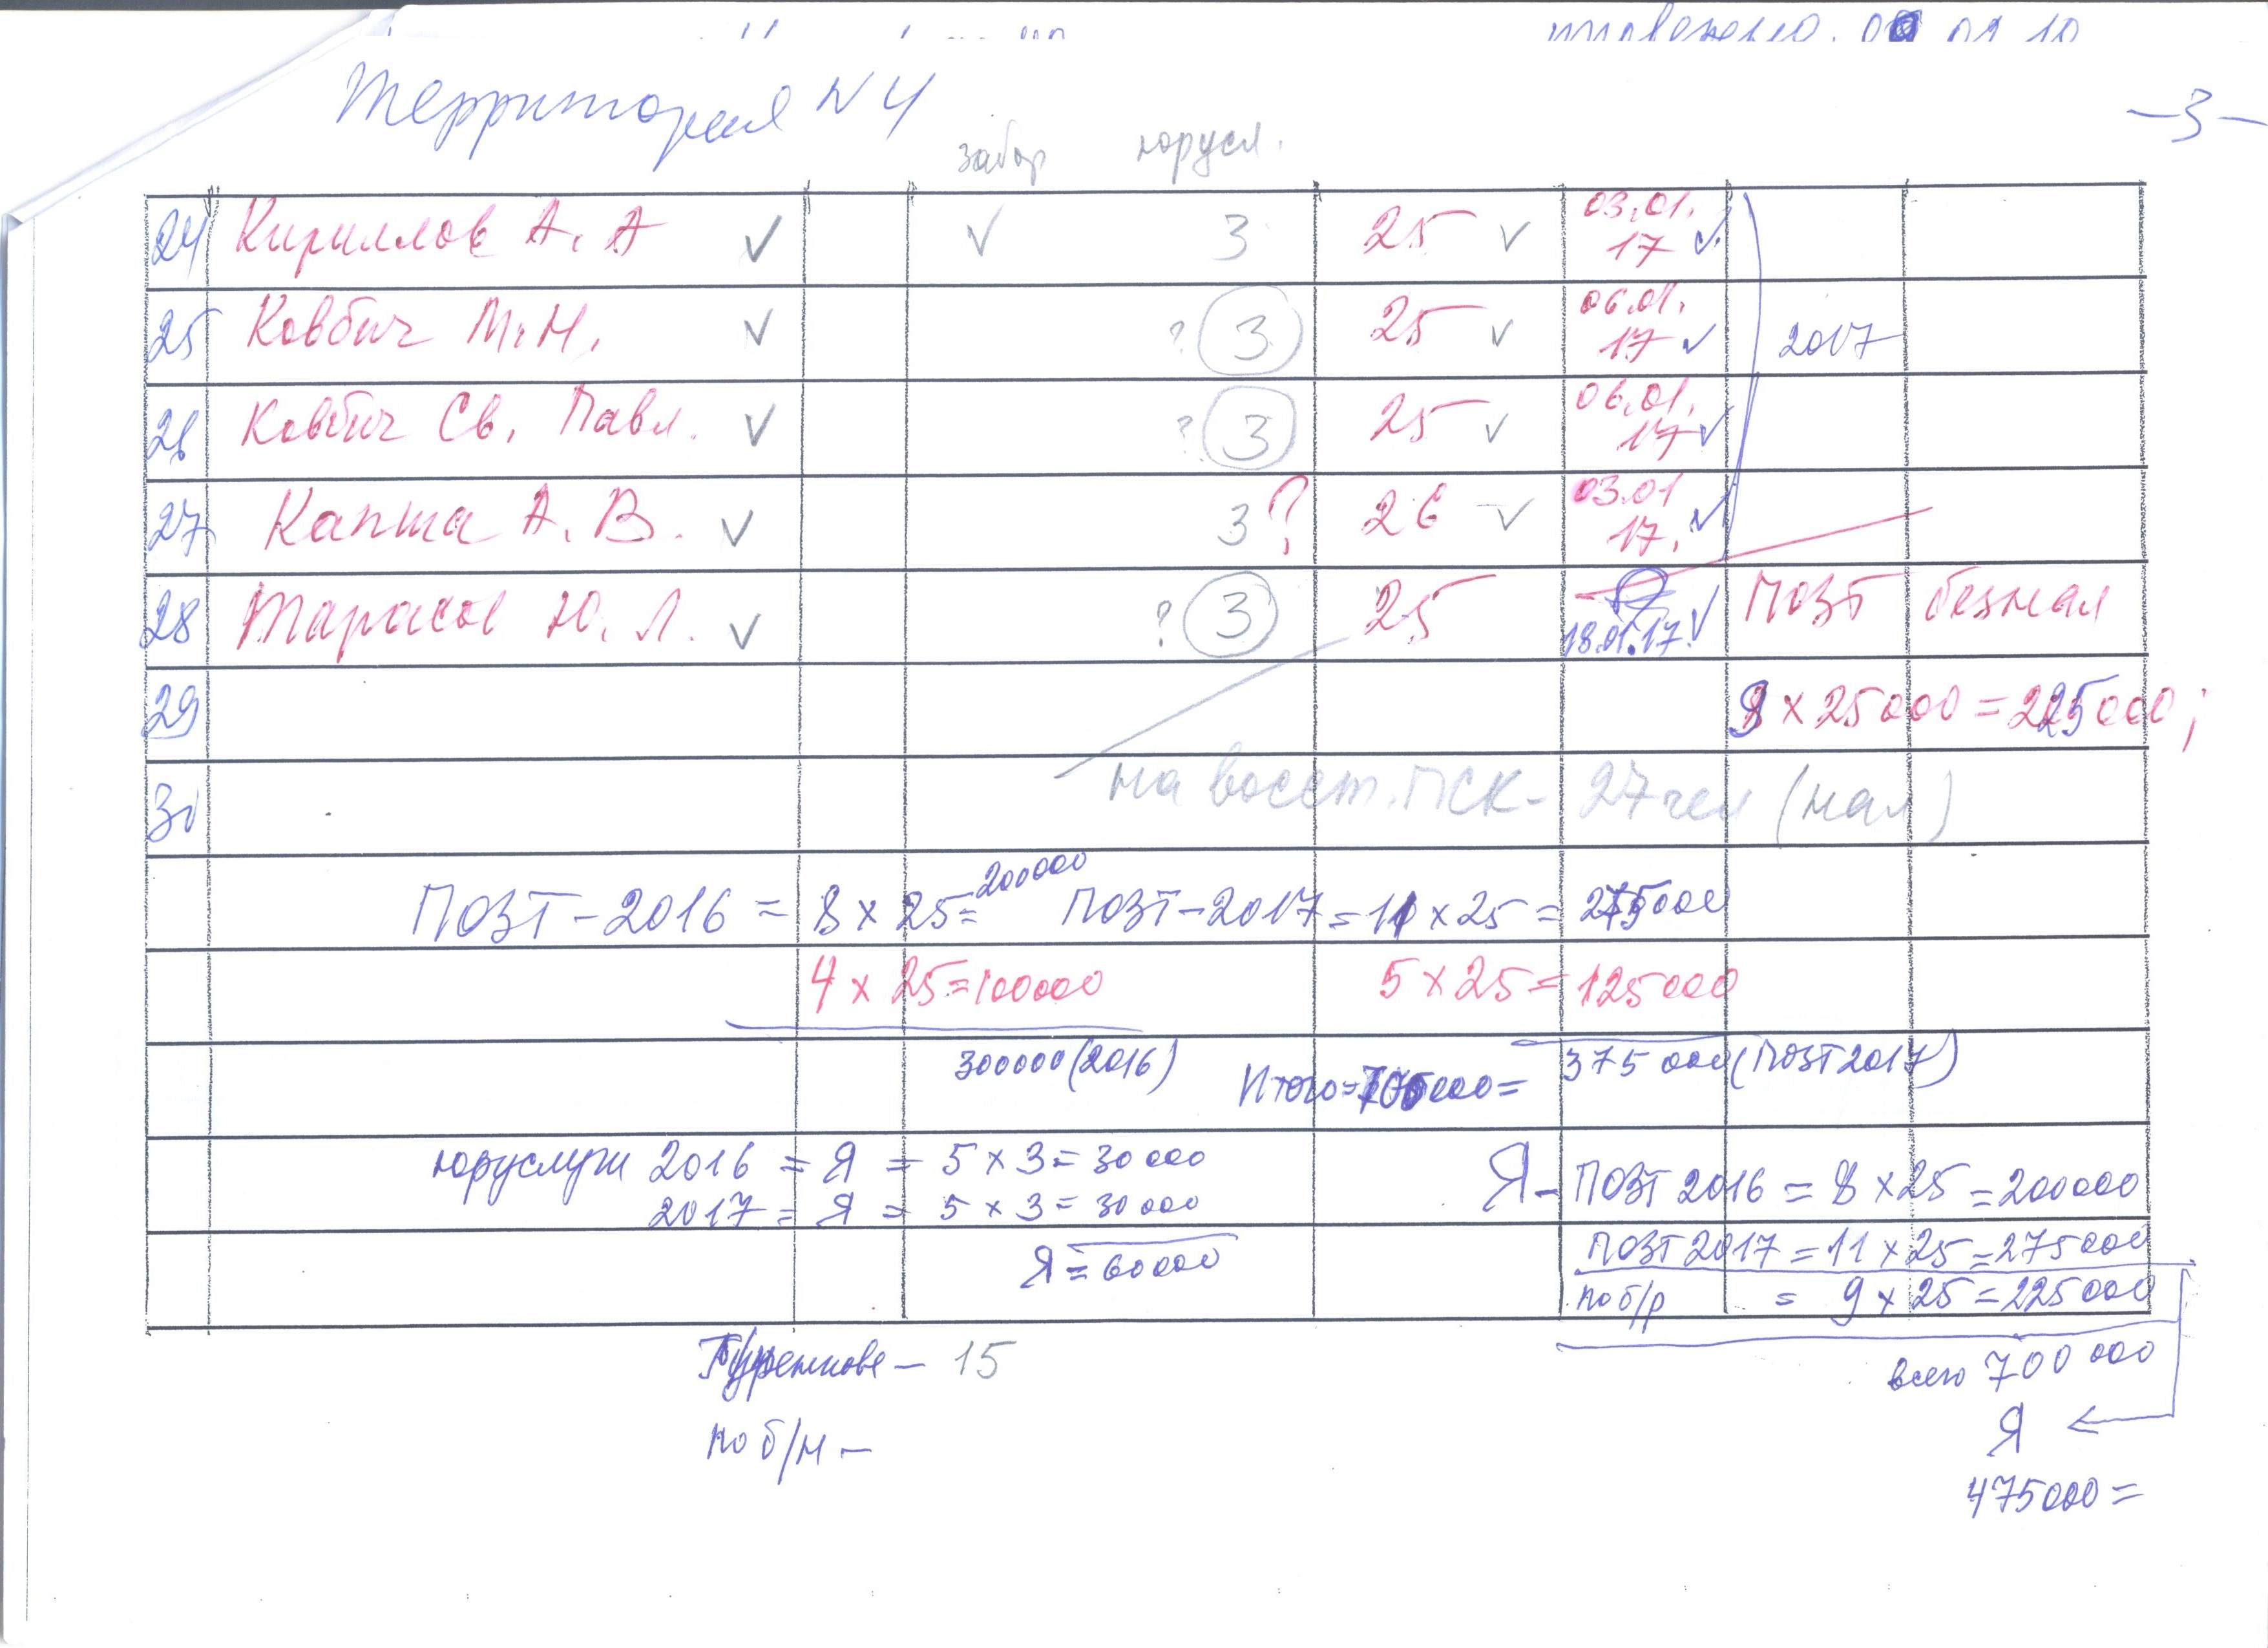 Территория N 4
-3-
забор юрусл.
24 Кириллов А. А ✓ ✓ 3 25 ✓ 03.01.17 ✓
25 Ковбич М.Н. ✓ ? 3 25 ✓ 06.01.17 ✓ 2017
26 Ковбич Св. Павл. ✓ ? 3 25 ✓ 06.01.17 ✓
27 Капша А. В. ✓ 3 ? 26 ✓ 03.01 17. ✓
28 Тарасов Ю. Л. ✓ ? 3 25 18.01.17. ✓ ПОЗТ безнал
29 9 x 25000 = 225000;
30 на восст. ПСК - 27 чел (нал)
ПОЗТ - 2016 = 8 x 25 = 200000 ПОЗТ - 2017 = 11 x 25 = 275000
4 x 25 = 100000 5 x 25 = 125000
300000 (2016) Итого = 700000 = 375 000 (ПОЗТ 2017)
юруслуги 2016 = Я = 5 x 3 = 30000 Я - ПОЗТ 2016 = 8 x 25 = 200000
2017 = Я = 5 x 3 = 30 000
Я = 60000 ПОЗТ 2017 = 11 x 25 = 275000
по б/р = 9 x 25 = 225000
- 15
всего 700 000
по б/н -
Я
475000 =